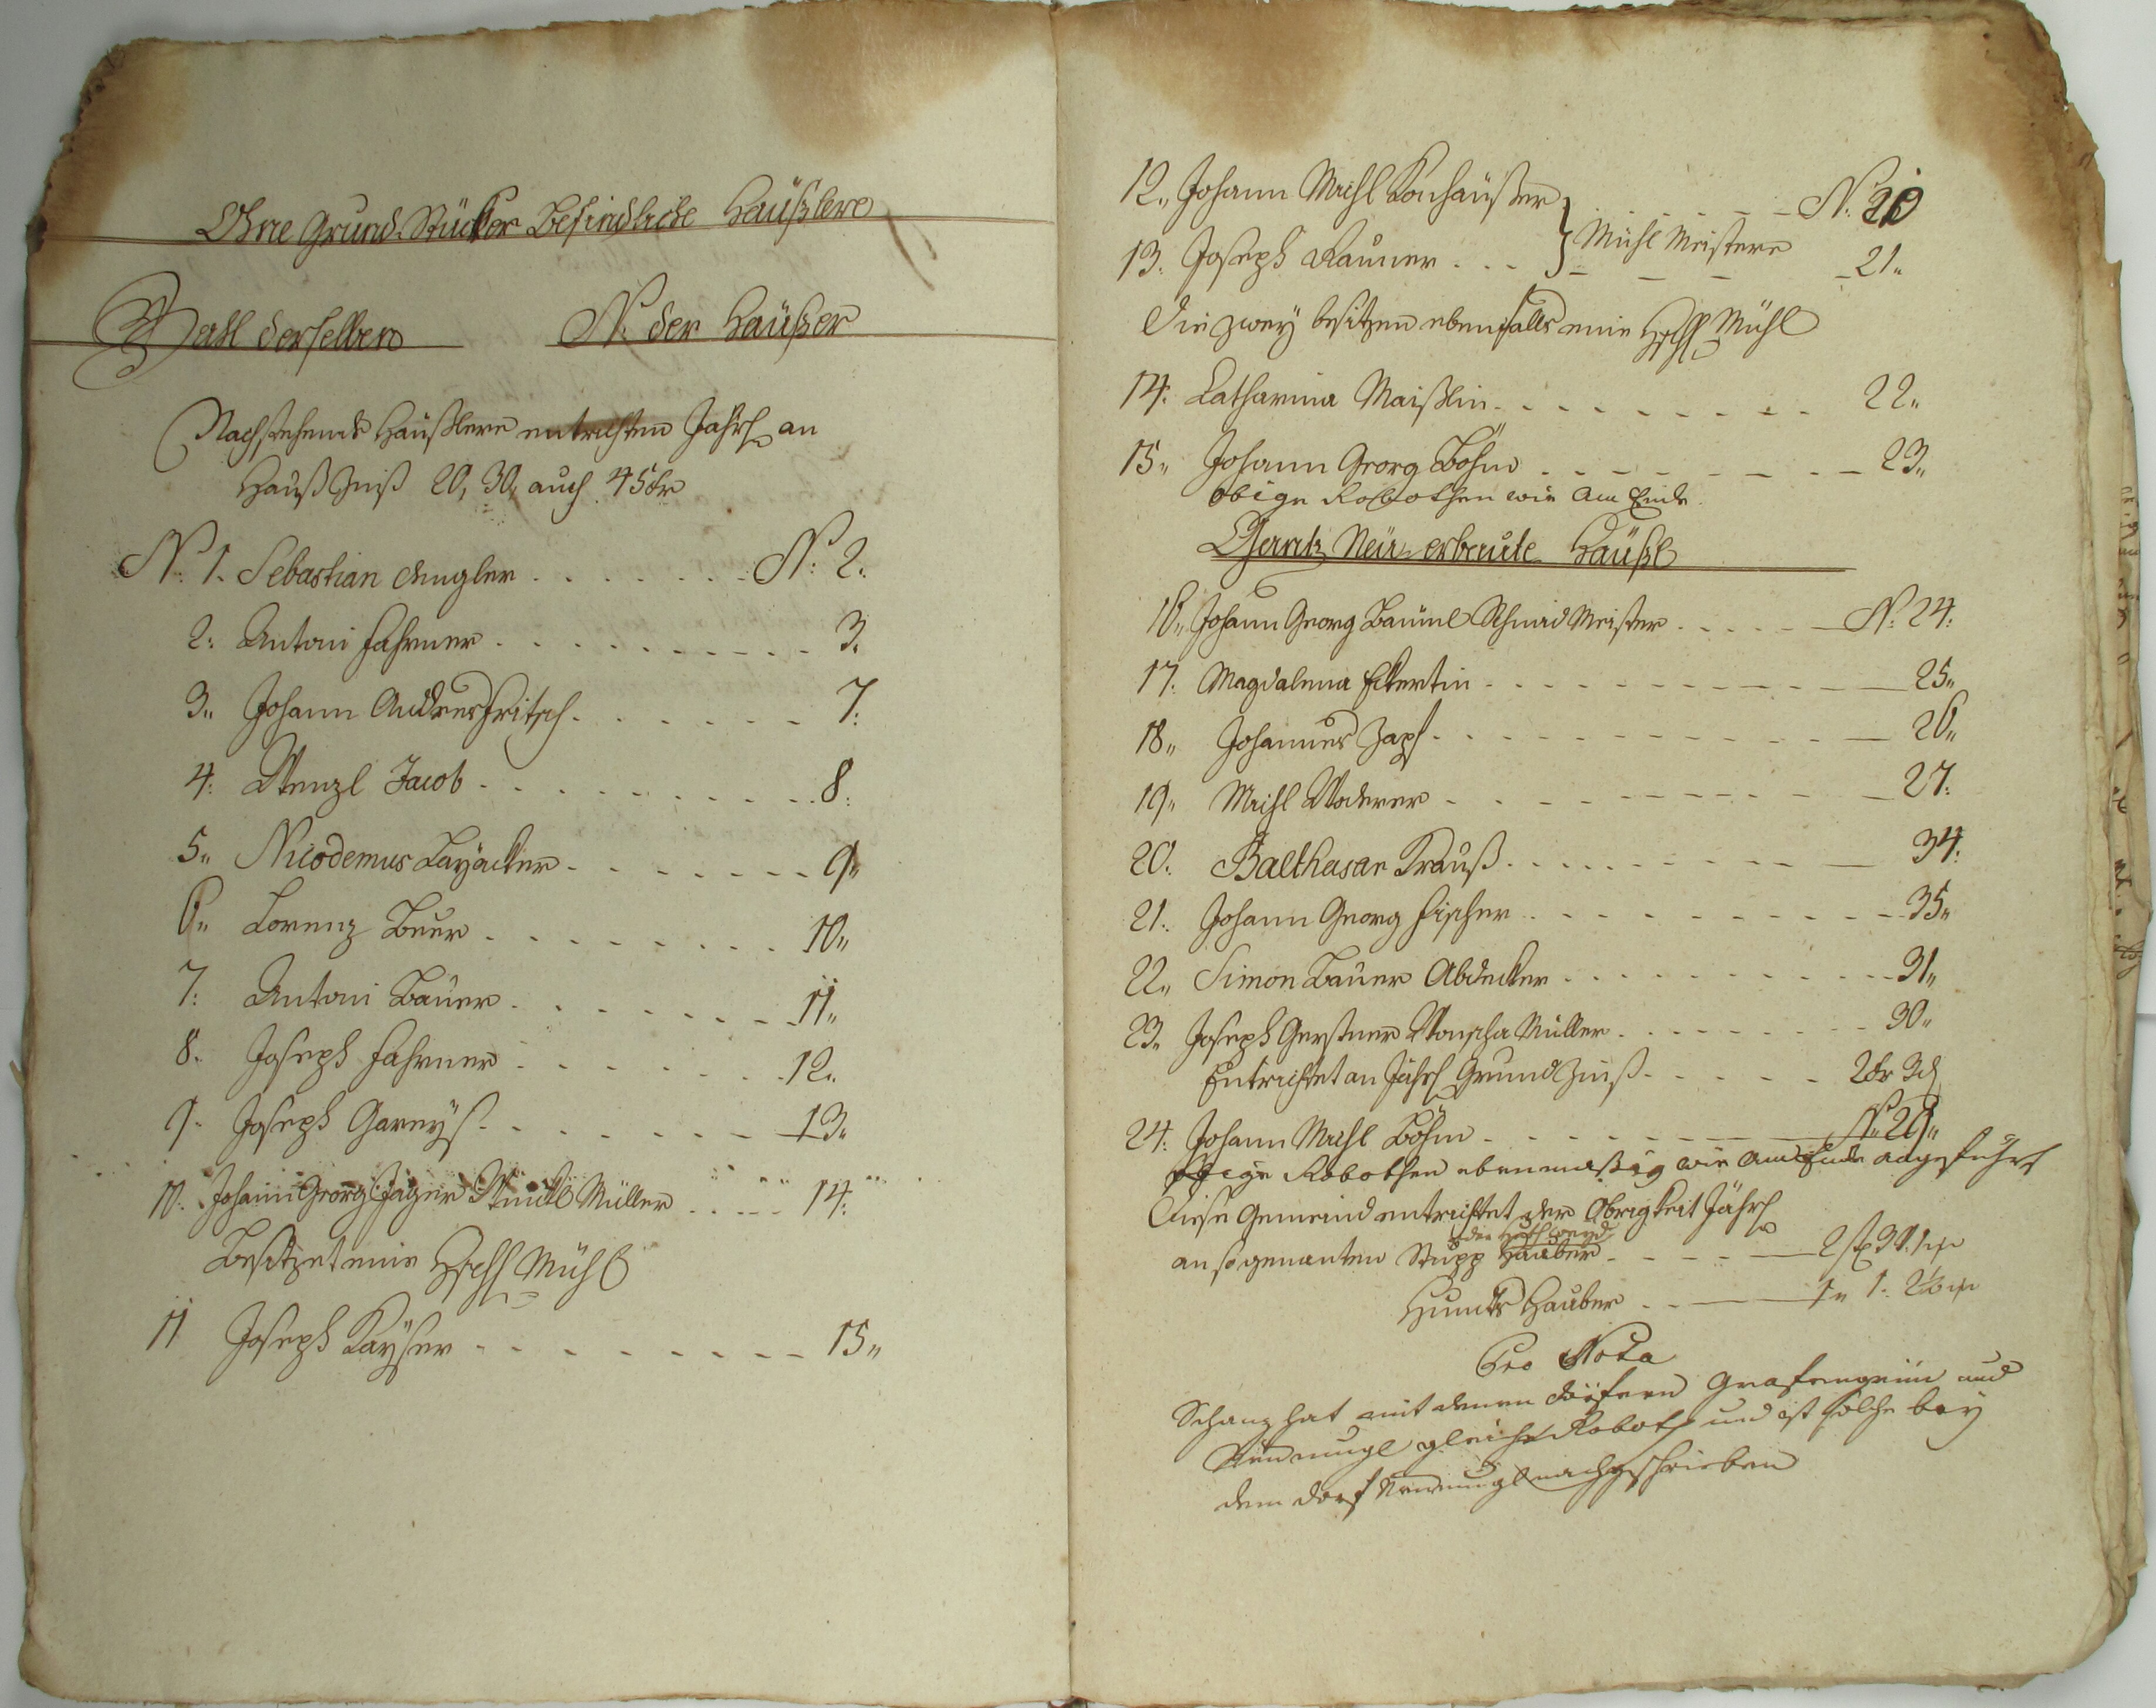 Ohne Grund-Stücker Befindliche Häußlere
Zahl derselben N: der Häußer
Nachstehende Häußlere entrichten Jährl an
Hauß Zinß 20, 30, auch 45 kr
N: 1. Sebastian Angler N: 2.
2: Antoni Fahrner 3.
3. Johann Andres Fritsch 7:
4: Wenzl Jacob 8:
5. Nicodemus Layacker 9.
6. Lorenz Beer 10.
7: Antoni Bauer 11.
8. Joseph Fahrner 12.
9. Joseph Gareyß 13.
10. Johann Georg Jäger Müller 14:
Besitzet eine Mühl
11 Joseph Kayser 15.
12. Johann Michl Konhäußer N: 20
13. Joseph Rauner } Mühl Meistere 21.
Die zwey besitzen ebenfalls eine Mühl
14: Catharina Maißlin 22.
15. Johann Georg Böhm 23.
obige Robothen wie am Ende.
Gantz Neü-erbaute Häußl
16. Johann Georg Bäuml Schmid Meister N: 24:
17: Magdalena Eckertin 25.
18. Johannes Zapf 26.
19. Michl Waderer 27:
20. Balthasar Krauß 34:
21. Johann Georg Fischer 35.
22. Simon Bauer Abdecker 31.
23. Joseph Gerstner Müller 30.
Entrichtet an Jährl Grund Zinß 2 kr 3 d
24: Johann Michl Böhm N: 29.
obige Robothen ebenmäßig wie am Ende angeführt
Diese Gemeind entrichtet der Obrigkeit Jährl
an so genanten Stupp Haaber
Hundts Haaber
Pro Nota
Schanz hat mit denen Dörfern Grafengrün und
Neumugl gleiche Roboth und ist solche bey
dem Dorf Neumugl nachgeschrieben